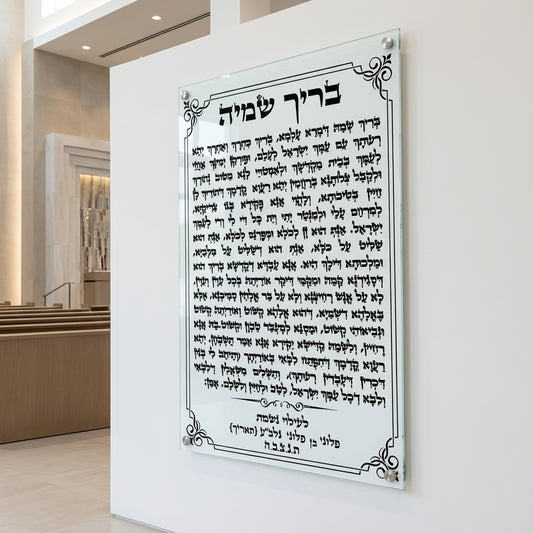 בריך שמיה
בְּרִיךְ שְׁמֵהּ דְּמָרֵא עָלְמָא, בְּרִיךְ כִּתְרָךְ וְאַתְרָךְ, יְהֵא
רְעוּתָךְ עִם עַמָּךְ יִשְׂרָאֵל לְעָלַם, וּפֻרְקַן יְמִינָךְ אַחֲזֵי
לְעַמָּךְ בְּבֵית מִקְדְּשָׁךְ וּלְאַמְטוּיֵי לָנָא מִטּוּב נְהוֹרָךְ
וּלְקַבֵּל צְלוֹתָנָא בְּרַחֲמִין יְהֵא רַעֲוָא קֳדָמָךְ דְּתוֹרִיךְ לָן
חַיִּין בְּטִיבוּתָא, וְלֶהֱוֵי אֲנָא פְקִידָא בְּגוֹ צַדִּיקַיָּא,
לְמִרְחַם עָלַי וּלְמִנְטַר יָתִי וְיַת כָּל דִּי לִי וְדִי לְעַמָּךְ
יִשְׂרָאֵל. אַנְתְּ הוּא זָן לְכֹלָּא וּמְפַרְנֵס לְכֹלָּא, אַנְתְּ הוּא
שַׁלִּיט עַל כֹּלָּא, אַנְתְּ הוּא דְּשַׁלִּיט עַל מַלְכַיָּא,
וּמַלְכוּתָא דִּילָךְ הִיא. אֲנָא עַבְדָּא דְקֻדְשָׁא בְּרִיךְ הוּא
דְּסָגִידְנָא קַמֵּהּ וּמִקַּמֵּי דִּיקַר אוֹרַיְתֵהּ בְּכָל עִדָּן וְעִדָּן,
לָא עַל אֱנָשׁ רָחִיצְנָא וְלָא עַל בַּר אֱלָהִין סָמִיכְנָא, אֶלָּא
בֶּאֱלָהָא דִשְׁמַיָּא, דְּהוּא אֱלָהָא קְשׁוֹט וְאוֹרַיְתֵהּ קְשׁוֹט
וּנְבִיאוֹהִי קְשׁוֹט, וּמַסְגֵּא לְמֶעְבַּד טַבְוָן וּקְשׁוֹט.בֵּהּ אֲנָא
רָחִיץ, וְלִשְׁמֵהּ קַדִּישָׁא יַקִּירָא אֲנָא אֵמַר תֻּשְׁבְּחָן, יְהֵא
רַעֲוָא קֳדָמָךְ דְּתִפְתַּח לִבָּאִי בְּאוֹרַיְתָךְ וְתֵיהַב לִי בְּנִין
דִּכְרִין דְּעָבְדִין רְעוּתָךְ, וְתַשְׁלִים מִשְׁאֲלִין דְּלִבָּאִי
וְלִבָּא דְכָל עַמָּךְ יִשְׂרָאֵל, לְטָב וּלְחַיִּין וְלִשְׁלָם, אָמֵן:
לעילוי נשמת
פלוני בן פלוני נלב"ע (תאריך)
ת.נ.צ.ב.ה